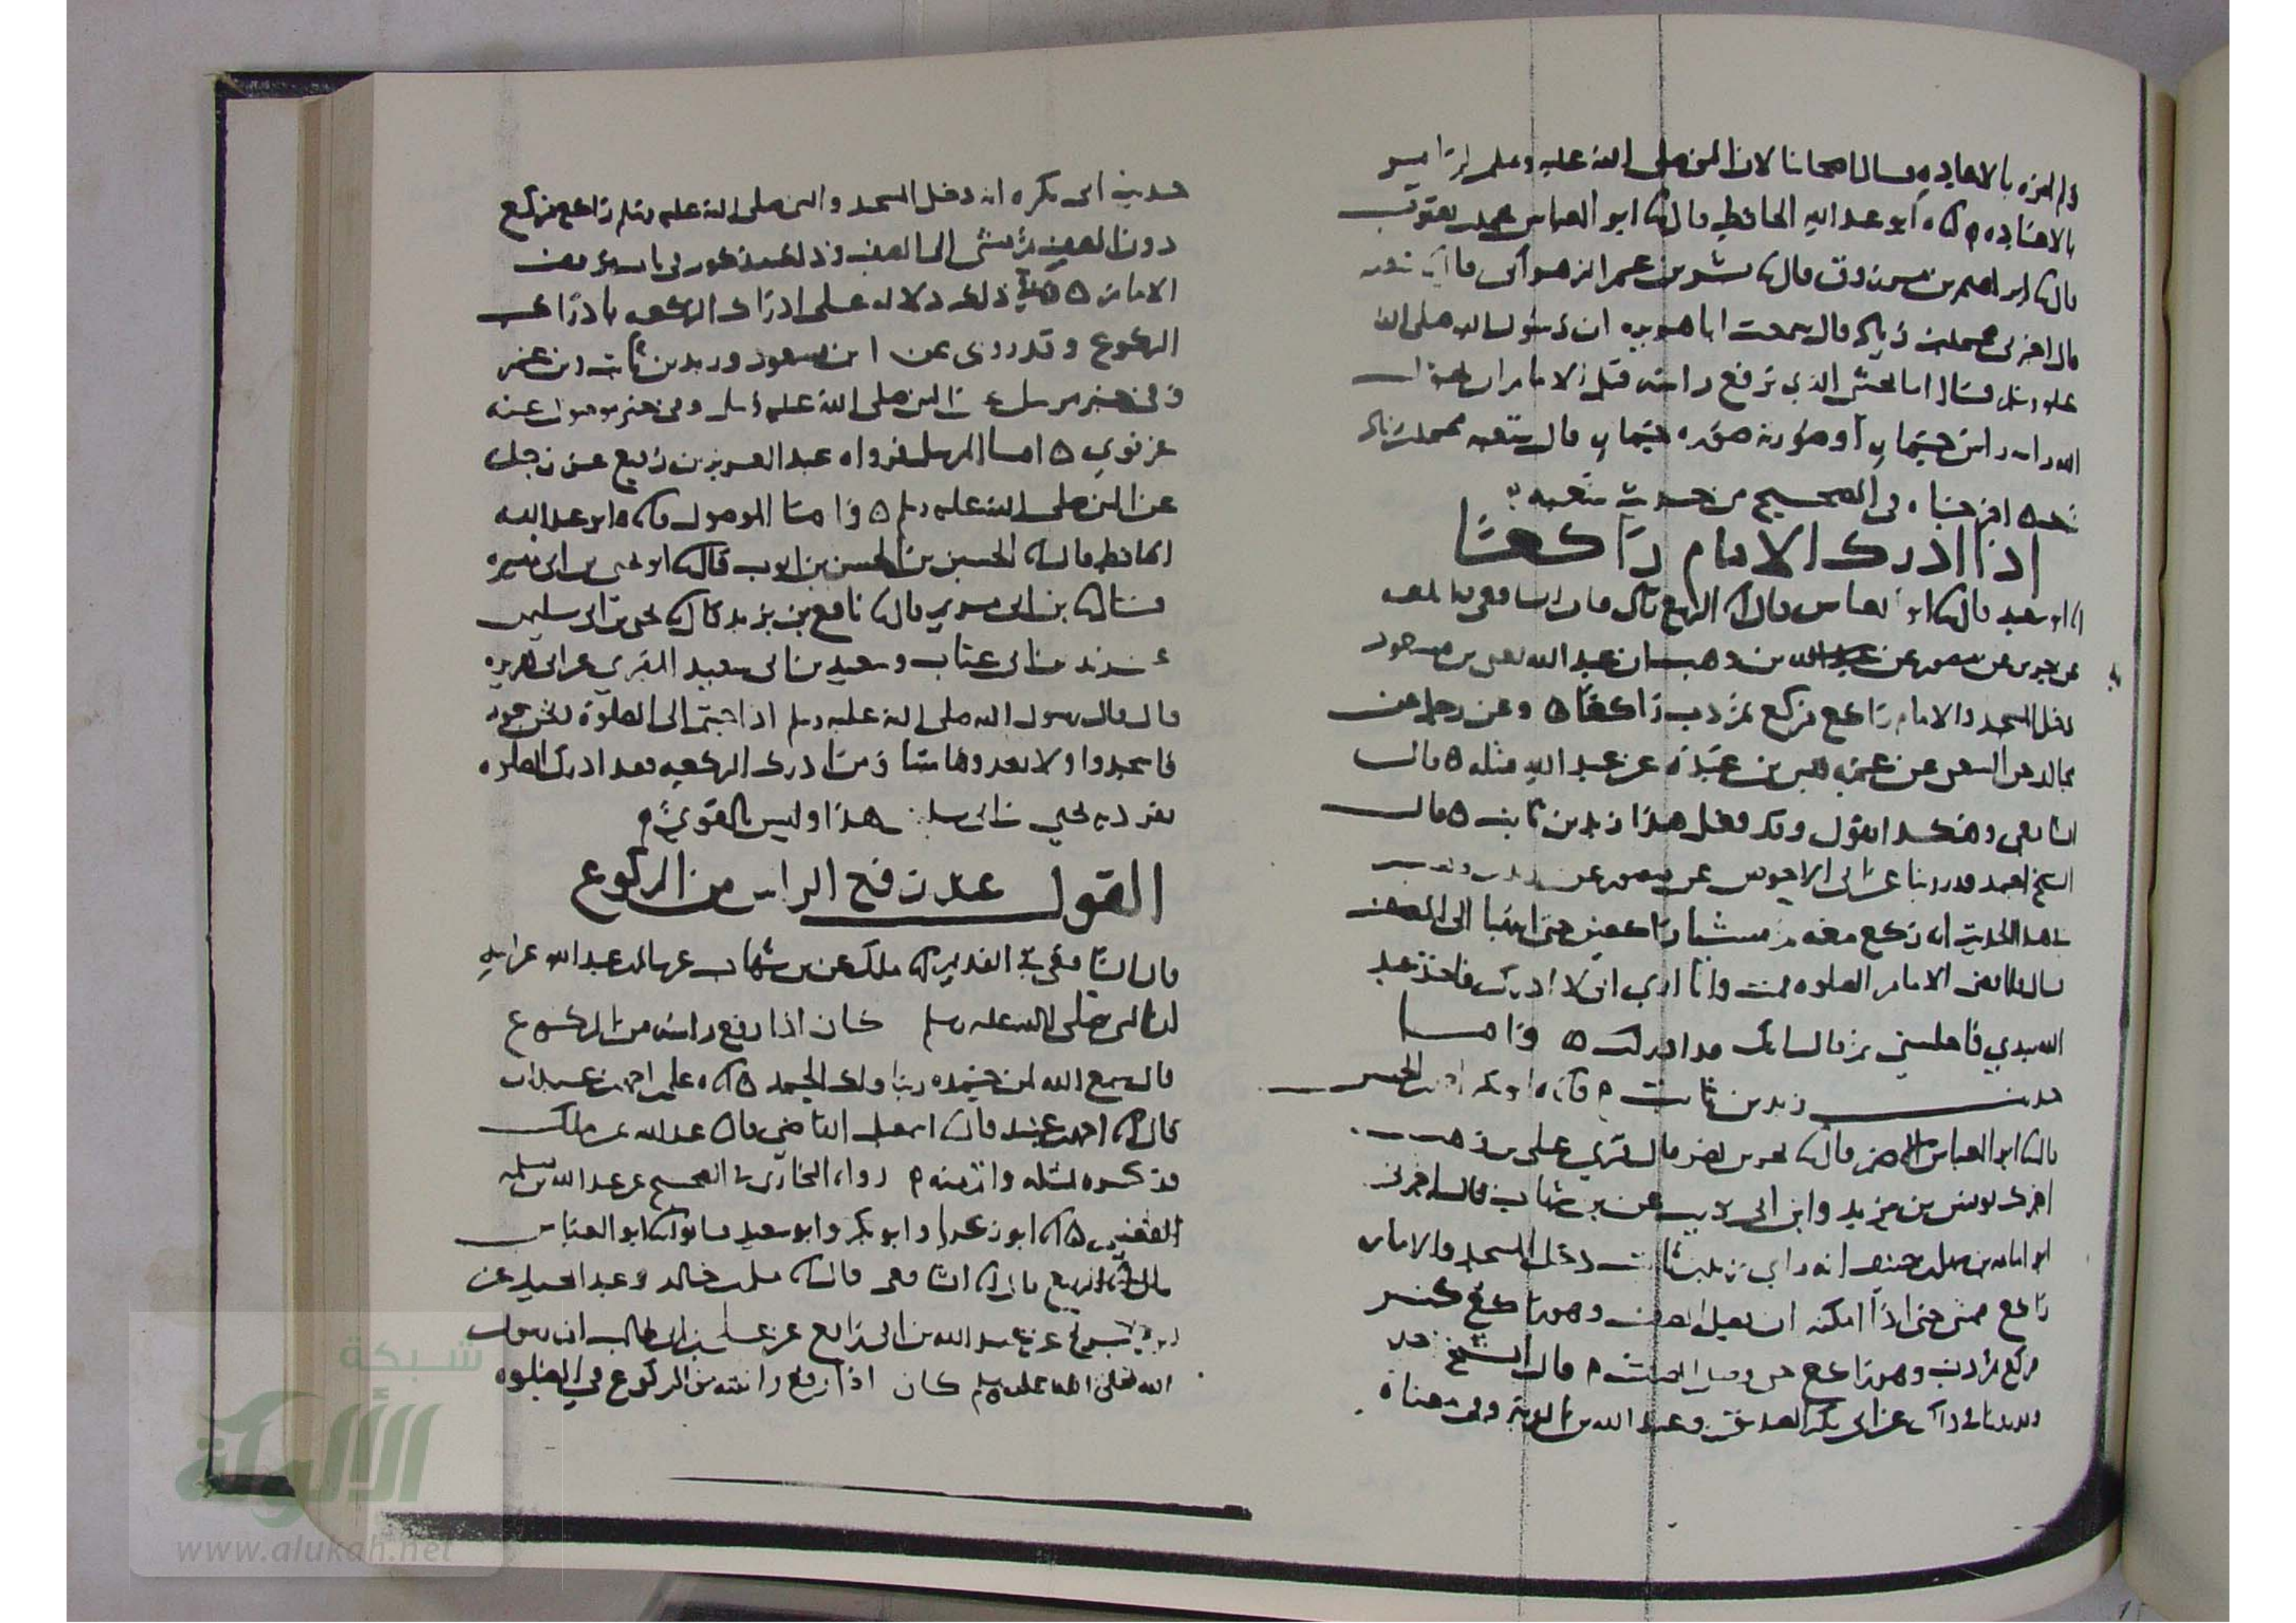 ولم يامره بالاعاده قال اصحابنا لان النبي صلى الله عليه وسلم لم يامر
بالاعاده ه ابو عبد الله الحافظ قال ابو العباس محمد بن يعقوب
قال ابراهيم بن مرزوق قال بشر بن عمر الزهراني قال شعبه
قال اخبرني محمد بن زياد قال سمعت ابا هريره ان رسول الله صلى الله
عليه وسلم قال اما يخشى الذي يرفع راسه قبل الامام ان يحول
الله راسه راس حمار او صورته صورة حمار قال شعبه محمد بن زياد
اخرجناه في الصحيح من حديث شعبه
اذا ادرك الامام راكعا
ابو سعيد قال ابو العباس قال الربيع قال قال الشافعي فيما بلغه
عن جرير عن منصور عن زيد بن وهب ان عبد الله يعني بن مسعود
دخل المسجد والامام راكع فركع ثم دب راكعا ه وعن رجل عن
مجالد عن الشعبي عن عمه قيس بن عبد عن عبد الله مثله ه قال
الشافعي وهكذا نقول وقد فعل هذا زيد بن ثابت ه قال
الشيخ احمد قد روينا عن ابي الاحوص عن منصور عن زيد بن وهب
هذا الحديث انه ركع معه ثم مشينا راكعين حتى انتهينا الى الصف
قال فلما قضى الامام الصلوه قمت وانا ارى اني لا ادرك فاخذ عبد
الله بيدي فاجلسني ثم قال انك قد ادركت ه واما
حديث زيد بن ثابت
قال ابو العباس الاصم قال بحر بن نصر قال قرئ على بن وهب
اخبرك يونس بن يزيد وابن ابي ذيب عن بن شهاب قال اخبرني
ابو امامه بن سهل بن حنيف انه راى زيد بن ثابت دخل المسجد والامام
راكع فمشى حتى اذا امكنه ان يصل الصف وهو راكع كبر
فركع ثم دب وهو راكع حتى وصل الصف ه قال الشيخ
وروينا في ذلك عن ابي بكر الصديق وعبد الله بن الزبير وفي معناه
حديث ابي بكره انه دخل المسجد والنبي صلى الله عليه وسلم راكع فركع
دون الصف ثم مشى الى الصف وذلك مذكور في باب موقف
الامام ه وفي ذلك دلاله على ادراك الركعه بادراك
الركوع وقد روي عن ابن مسعود وزيد بن ثابت وبن عمر
وفي خبر مرسل عن النبي صلى الله عليه وسلم وفي خبر موصول عنه
غير قوي ه اما المرسل فرواه عبد العزيز بن رفيع عن رجل
عن النبي صلى الله عليه وسلم ه واما الموصول ابو عبد الله
الحافظ قال الحسين بن الحسن بن ايوب قال ابو يحيى بن ابي مسره
قال بن ابي مريم قال نافع بن يزيد قال يحيى بن ابي سليمن
عن زيد بن ابي عتاب وسعيد بن ابي سعيد المقبري عن ابي هريره
قال قال رسول الله صلى الله عليه وسلم اذا جيتم الى الصلوة ونحن سجود
فاسجدوا ولا تعدوها شيئا ومن ادرك الركعه فقد ادرك الصلوه
تفرد به يحيى بن ابي سليمن هذا وليس بالقوي ه
القول عند رفع الراس من الركوع
قال الشافعي في القديم مالك عن بن شهاب عن سالم بن عبد الله عن ابيه
ان النبي صلى الله عليه وسلم كان اذا رفع راسه من الركوع
قال سمع الله لمن حمده ربنا ولك الحمد ه علي بن احمد بن عبدان
قال احمد بن عبيد قال اسمعيل القاضي قال عبد الله عن ملك
فذكره بمثله واتم منه ه رواه البخاري في الصحيح عن عبد الله بن مسلمه
القعنبي ه ابو زكريا وابو بكر وابو سعيد قالوا ابو العباس
قال الربيع قال الشافعي قال مسلم بن خالد وعبد المجيد عن
عن عبيد الله بن ابي رافع عن علي بن ابي طالب ان رسول
الله صلى الله عليه وسلم كان اذا رفع راسه من الركوع في الصلوه
شبكة
الألوكة
www.alukah.net